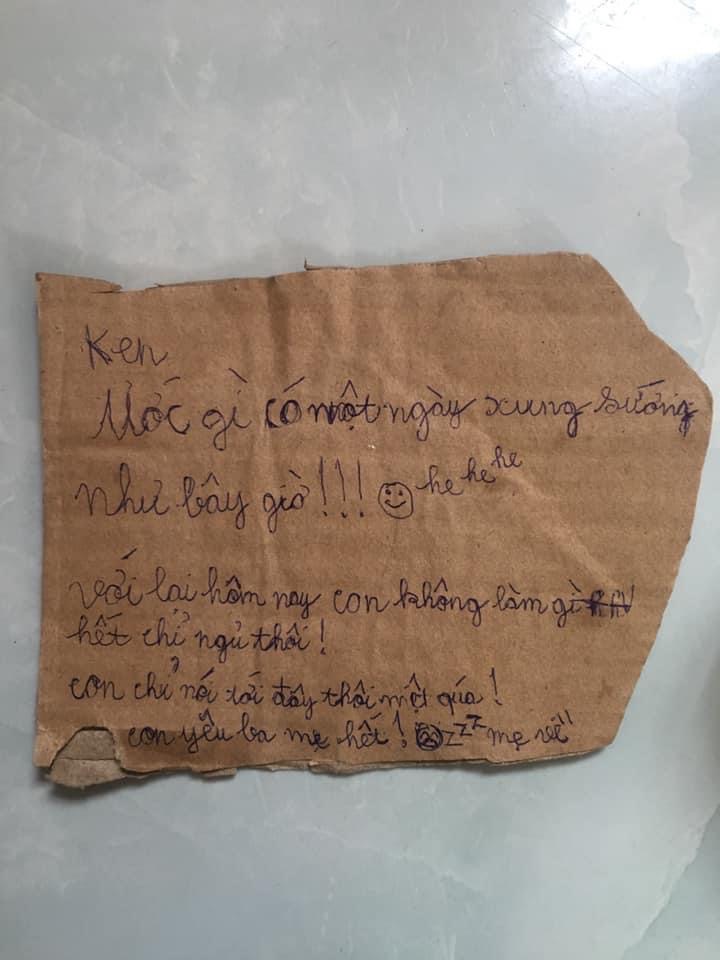 Ken
Ước gì có một ngày xung sướng
như bây giờ!!! he he he
với lại hôm nay con không làm gì
hết chỉ ngủ thôi!
con chỉ nói tới đây thôi mệt quá!
con yêu ba mẹ hết! zzz mẹ về